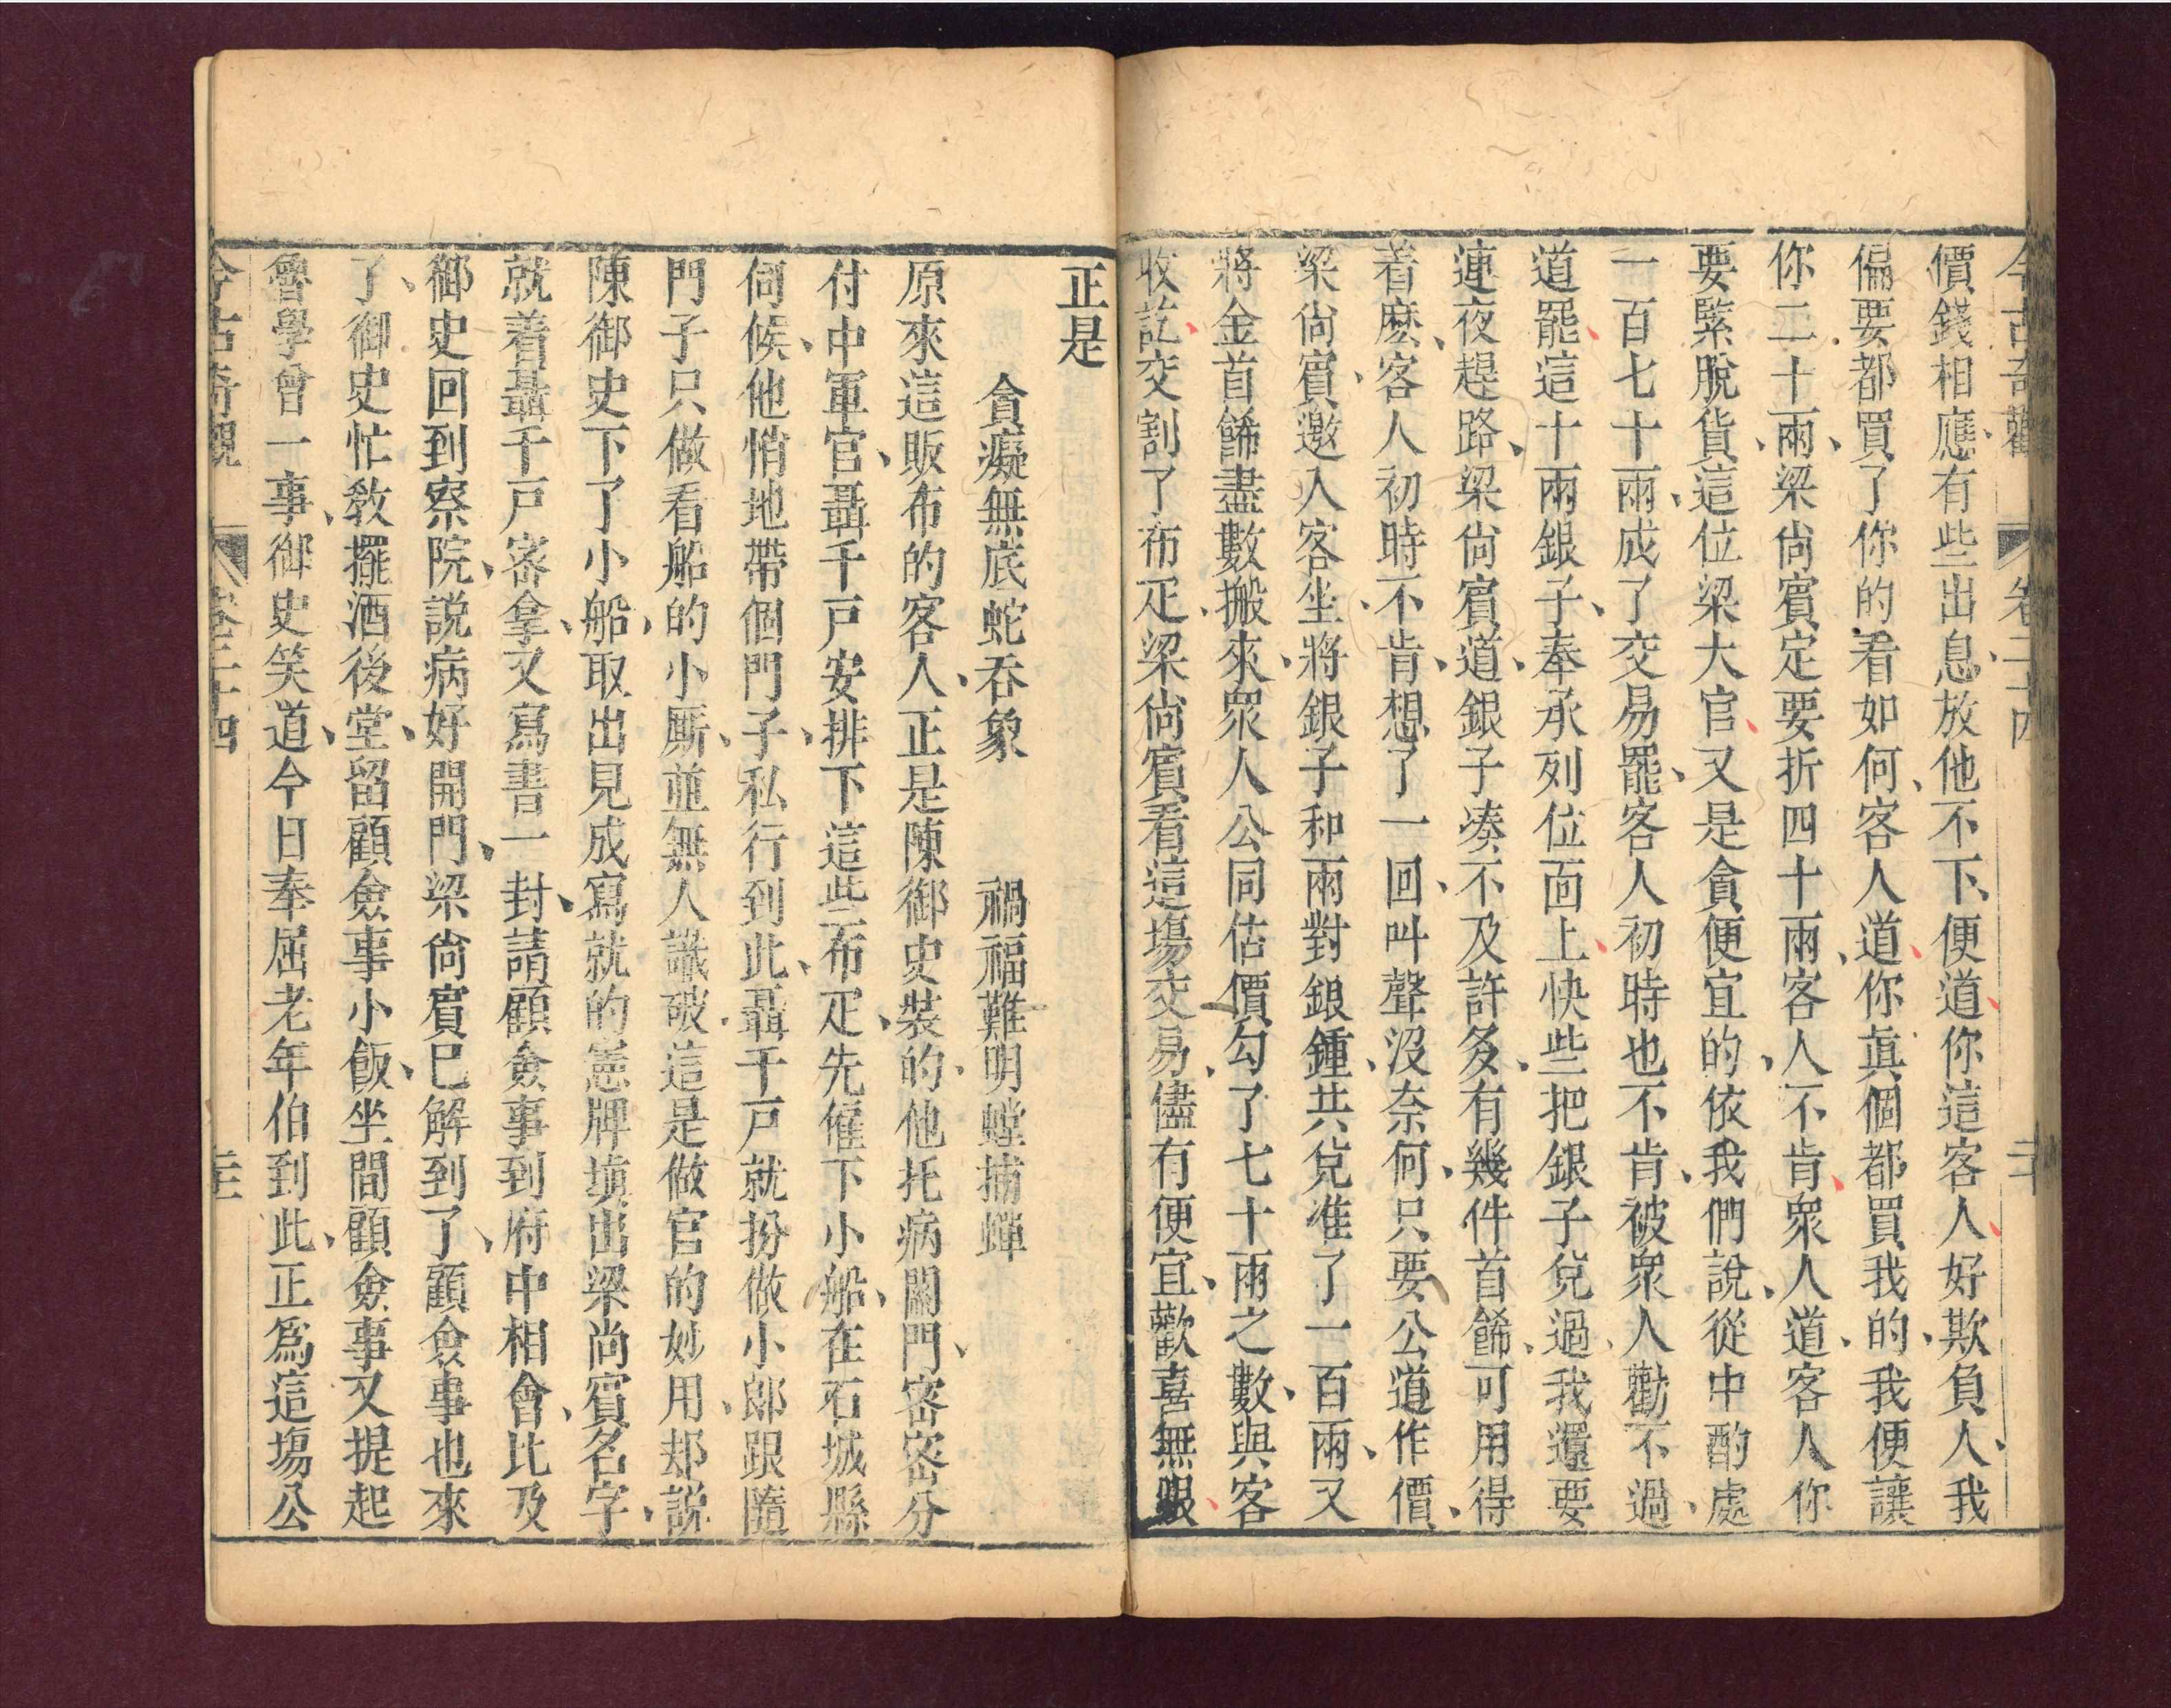 今古奇觀 卷二十四 二十
價錢相應有些出息放他不下便道你這客人好欺負人我
偏要都買了你的看如何客人道你眞個都買我的我便讓
你二十兩梁尙賓定要折四十兩客人不肯衆人道客人你
要緊脫貨這位梁大官又是貪便宜的依我們說從中酌處
一百七十兩成了交易罷客人初時也不肯被衆人勸不過
道罷這十兩銀子奉承列位面上快些把銀子兌過我還要
連夜趕路梁尙賓道銀子凑不及許多有幾件首餙可用得
着麽客人初時不肯想了一回叫聲沒奈何只要公道作價
梁尙賓邀入客坐將銀子和兩對銀鍾共兌准了一百兩又
將金首餙盡數搬來衆人公同估價勾了七十兩之數與客
收訖交割了布疋梁尙賓看這塲交易儘有便宜歡喜無限
正是
貪癡無底蛇吞象 禍福難明螳捕蟬
原來這販布的客人正是陳御史裝的他托病關門密密分
付中軍官聶千戸安排下這些布疋先僱下小船在石城縣
伺候他悄地帶個門子私行到此聶千戸就扮做小郎跟隨
門子只做看船的小厮並無人識破這是做官的妙用却説
陳御史下了小船取出見成寫就的憲牌塡出梁尙賓名字
就着聶千戸密拿又寫書一封請顧僉事到府中相會比及
御史回到察院説病好開門梁尙賓已解到了顧僉事也來
了御史忙敎擺酒後堂留顧僉事小飯坐間顧僉事又提起
魯學曾一事御史笑道今日奉屈老年伯到此正爲這塲公
今古奇觀 卷二十四